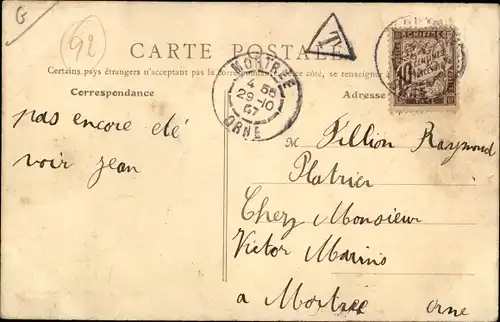 G
92
T
CARTE POSTALE
Certains pays étrangers n'acceptant pas la correspondance de ce côté, se renseigner à
Correspondance
Adresse
MORTRÉE
4 55
29-10
07
ORNE
CHIFFRE
10
CENTIMES
À PERCEVOIR
pas encore été
voir jean
M Fillion Raymond
Platrier
Chez Monsieur
Victor Marins
a Mortree Orne